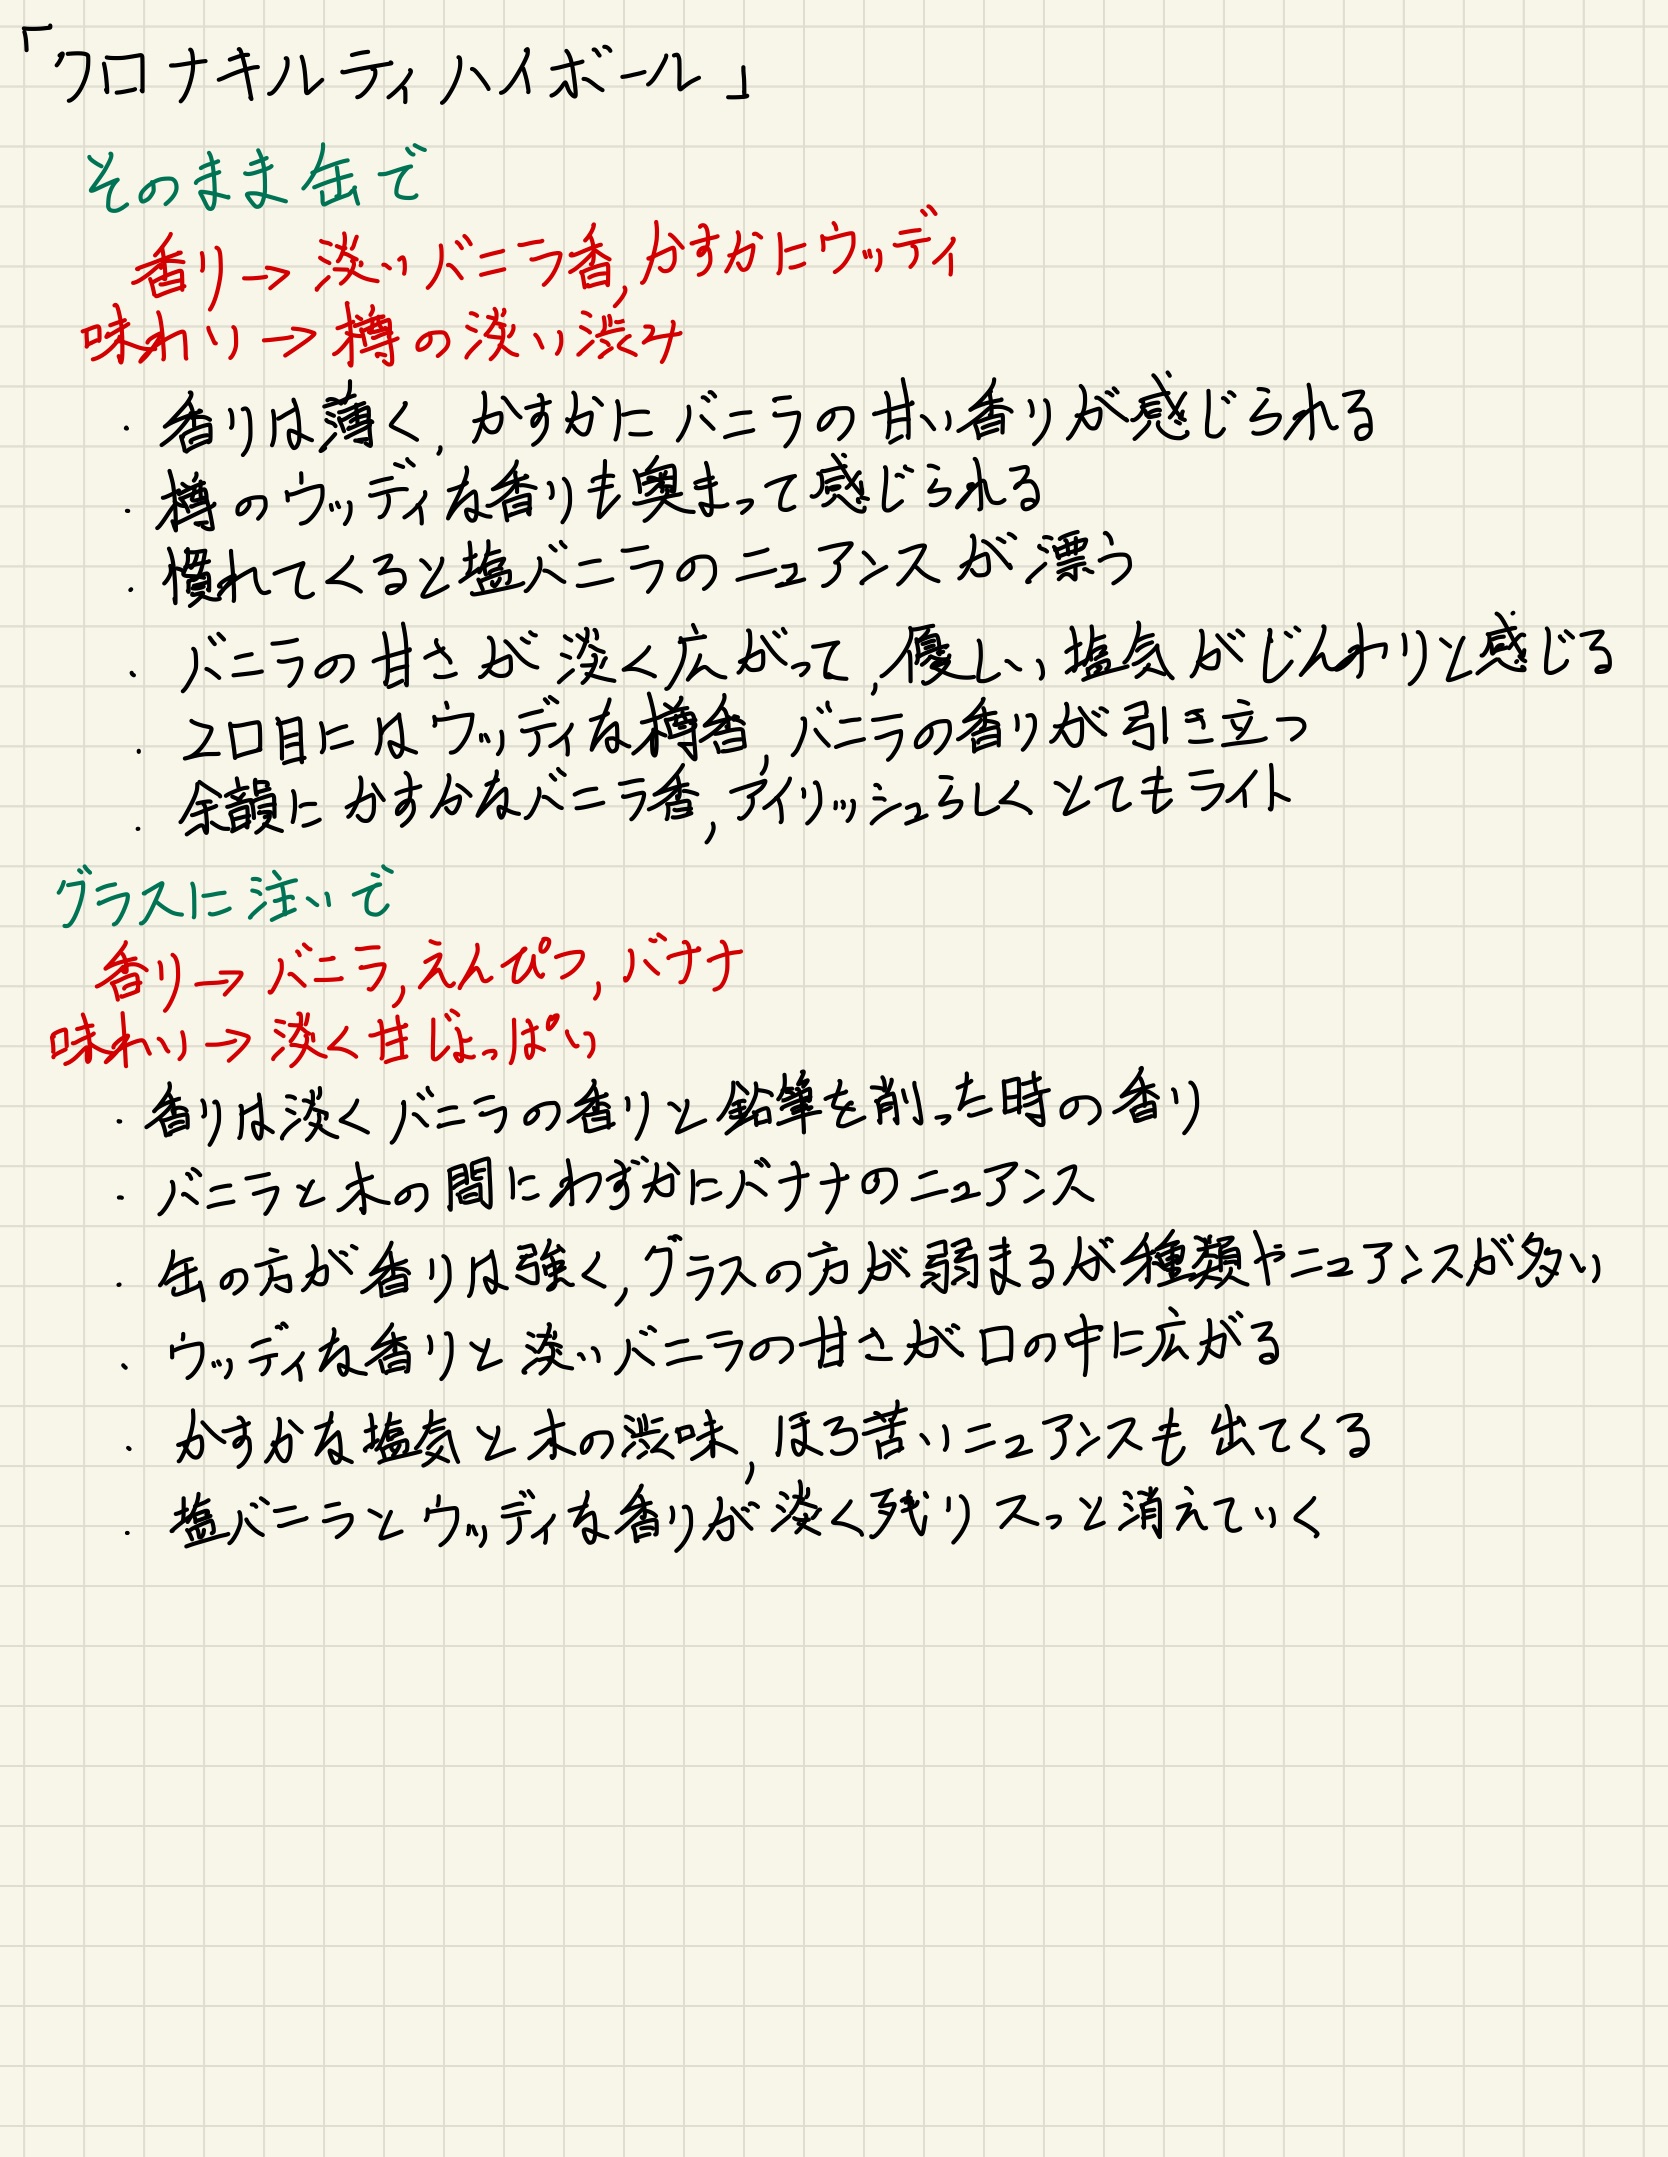 「クロナキルティハイボール」
そのまま缶で
香り→淡いバニラ香,かすかにウッディ
味わい→樽の淡い渋み
・香りは薄く,かすかにバニラの甘い香りが感じられる
・樽のウッディな香りも奥まって感じられる
・慣れてくると塩バニラのニュアンスが漂う
・バニラの甘さが淡く広がって,優しい塩気がじんわりと感じる
・2口目にはウッディな樽香,バニラの香りが引き立つ
・余韻にかすかなバニラ香,アイリッシュらしくとてもライト
グラスに注いで
香り→バニラ,えんぴつ,バナナ
味わい→淡く甘じょっぱい
・香りは淡くバニラの香りと鉛筆を削った時の香り
・バニラと木の間にわずかにバナナのニュアンス
・缶の方が香りは強く,グラスの方が弱まるが種類やニュアンスが多い
・ウッディな香りと淡いバニラの甘さが口の中に広がる
・かすかな塩気と木の渋味,ほろ苦いニュアンスも出てくる
・塩バニラとウッディな香りが淡く残りスっと消えていく